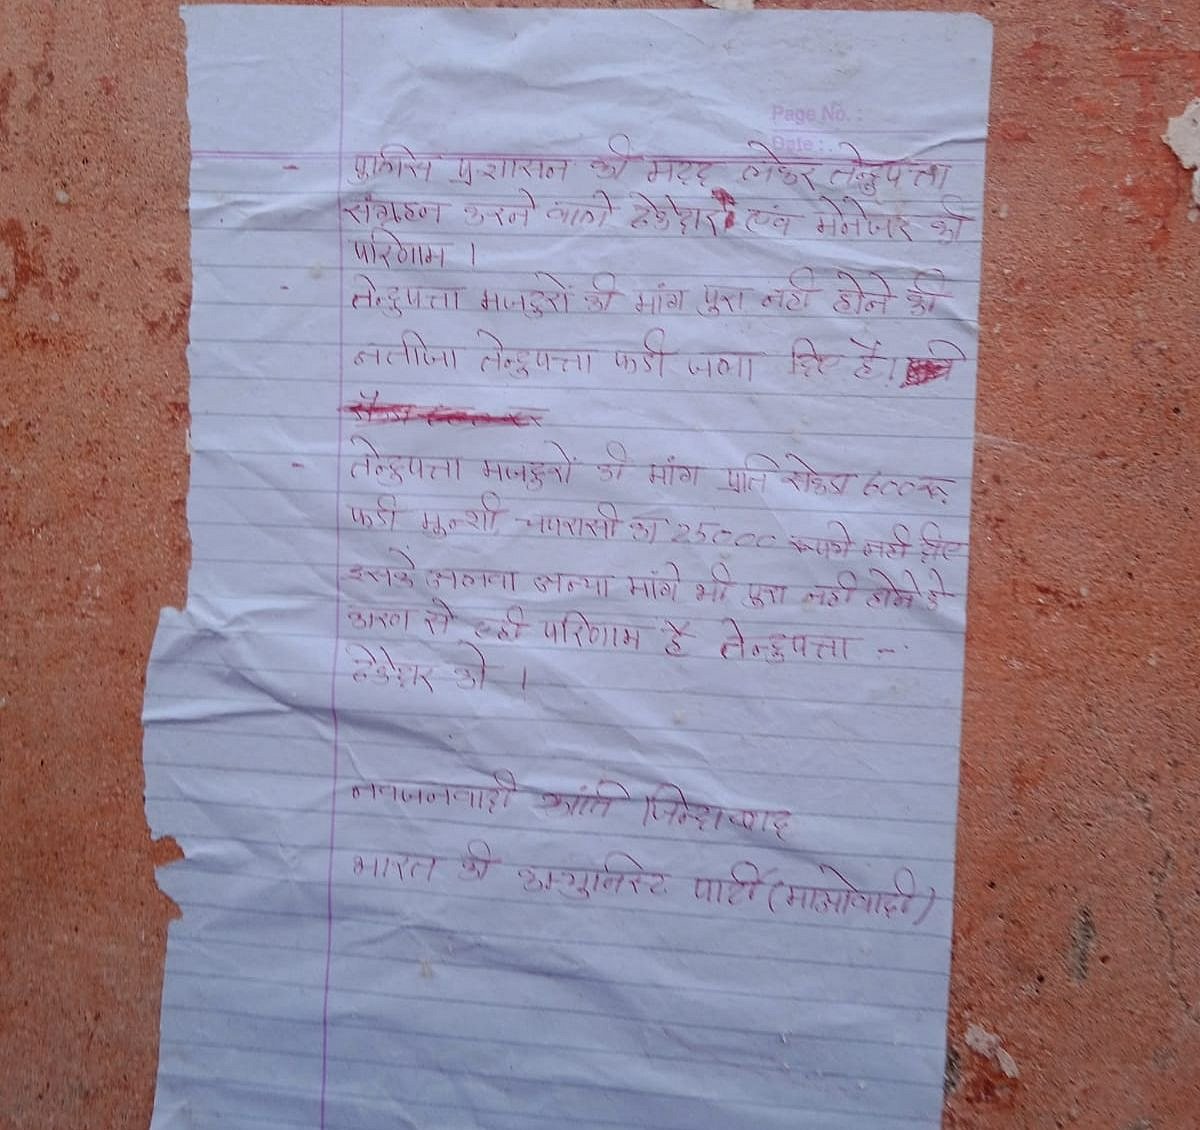 Page No. :
Date :
- पुलिस प्रशासन की मदद लेकर तेन्दुपत्ता
संग्रहन करने वाले ठेकेदार एवं मेनेजर को
परिणाम ।
- तेन्दुपत्ता मजदुरों की मांग पुरा नही होने की
नतीजा तेन्दुपत्ता फडी जला दिए है।
- तेन्दुपत्ता मजदुरों की मांग प्रति सेकडा 600रू.
फडी मुन्शी चपरासी का 25000 रूपये नही दिए
इसके अलावा अन्या मांगे भी पुरा नही होने के
कारण से यही परिणाम है तेन्दुपत्ता -
ठेकेदार को ।
नवजनवादी क्रांति जिन्दाबाद
भारत की कम्युनिस्ट पार्टी (माओवादी)